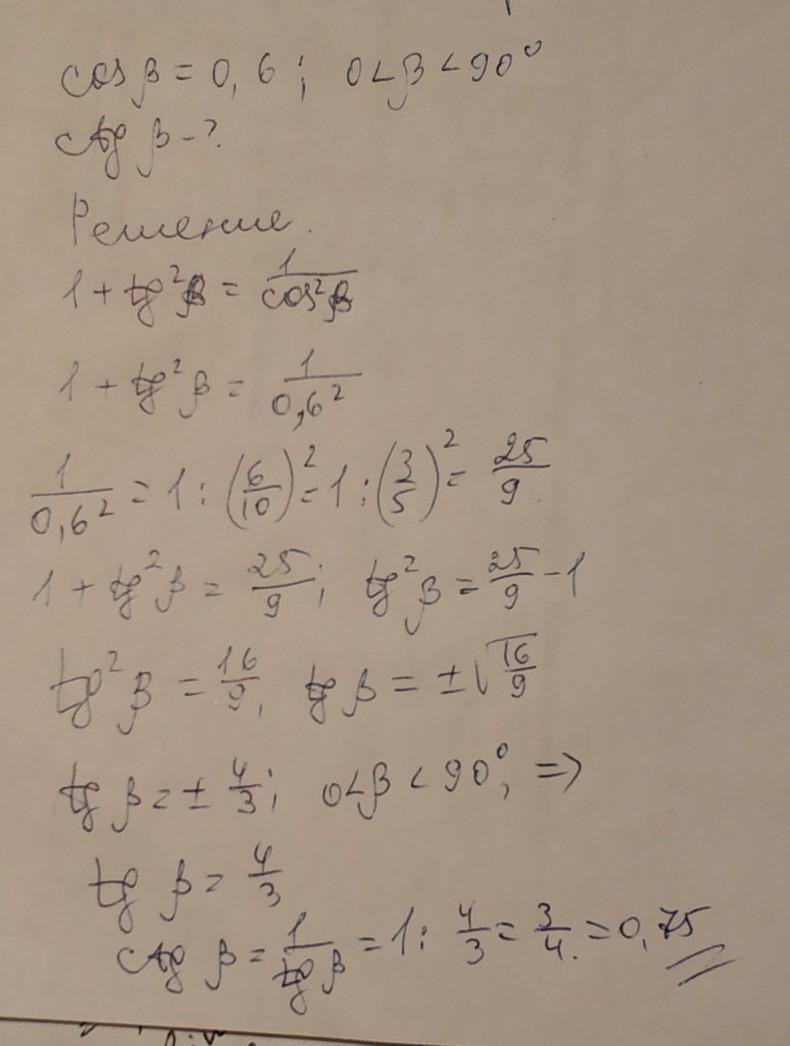 cos β = 0,6 ; 0<β<90°
ctg β - ?
Решение.
1 + tg²β = 1/cos²β
1 + tg²β = 1/0,6²
1/0,6² = 1 : (6/10)² = 1 : (3/5)² = 25/9
1 + tg²β = 25/9 ; tg²β = 25/9 - 1
tg²β = 16/9, tg β = ±√(16/9)
tg β = ± 4/3 ; 0<β<90°, =>
tg β = 4/3
ctg β = 1/tg β = 1 : 4/3 = 3/4. = 0,75